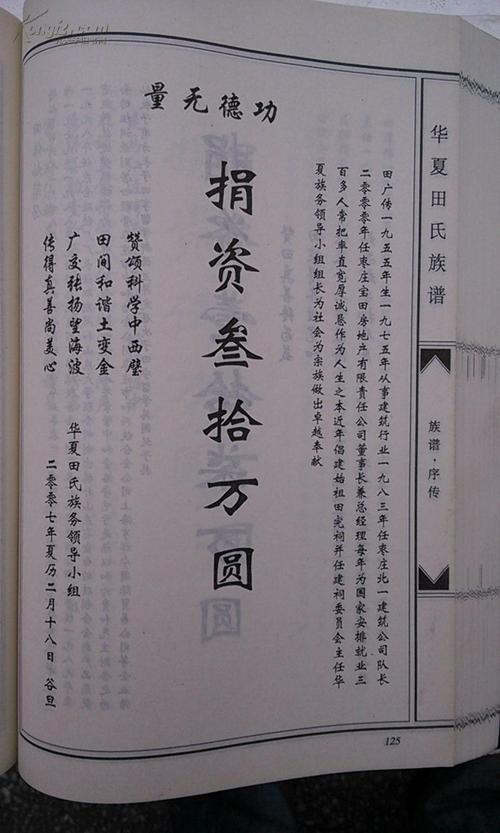 华夏田氏族谱
族谱·序传
田广传一九五五年生一九七五年从事建筑行业一九八三年任枣庄北一建筑公司队长
二〇〇〇年任枣庄宝田房地产有限责任公司董事长兼总经理每年为国家安排就业三
百多人常把率直宽厚诚恳作为人生之本近年倡建始祖田完祠并任建祠委员会主任华
夏族务领导小组组长为社会为宗族做出卓越奉献
功德无量
捐资叁拾万圆
赞颂科学中西璧
田间和谐土变金
广交张扬望海波
传得真善尚美心
华夏田氏族务领导小组
二〇〇七年夏历二月十八日谷旦
125